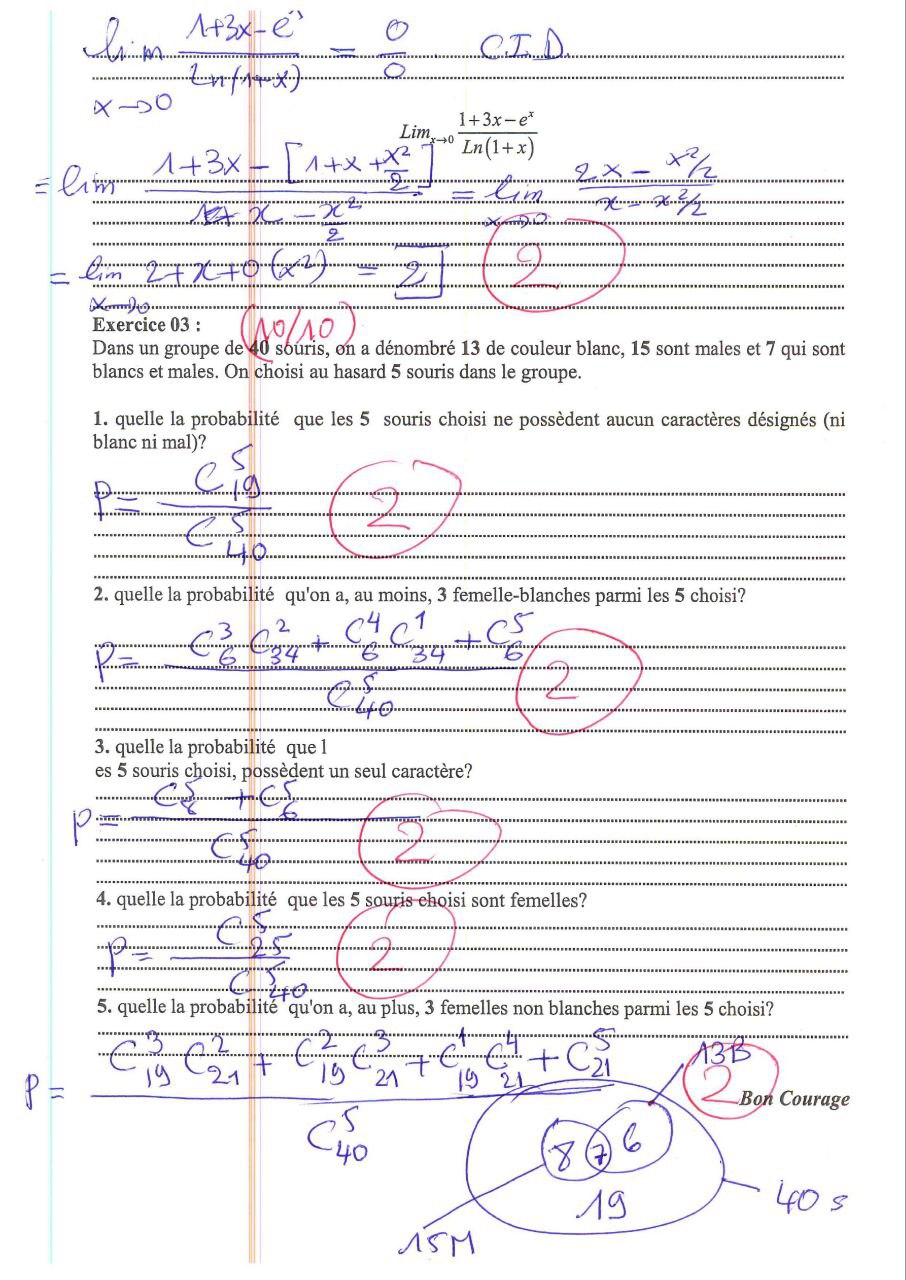 lim x→0 (1+3x-eˣ)/(Ln(1+x)) = 0/0 C.I.D.
Lim x→0 (1+3x−eˣ)/(Ln(1+x))
= lim (1+3x - [1+x+x²/2])/(x - x²/2) = lim x→0 (2x - x²/2)/(x - x²/2)
= lim x→0 2+x+0(x²) = 2 2
Exercice 03 : (10/10)
Dans un groupe de 40 souris, on a dénombré 13 de couleur blanc, 15 sont males et 7 qui sont
blancs et males. On choisi au hasard 5 souris dans le groupe.
1. quelle la probabilité que les 5 souris choisi ne possèdent aucun caractères désignés (ni
blanc ni mal)?
P = C⁵₁₉ / C⁵₄₀ 2
2. quelle la probabilité qu'on a, au moins, 3 femelle-blanches parmi les 5 choisi?
P = (C³₆ C²₃₄ + C⁴₆ C¹₃₄ + C⁵₆) / C⁵₄₀ 2
3. quelle la probabilité que l
es 5 souris choisi, possèdent un seul caractère?
P = (C⁵₈ + C⁵₆) / C⁵₄₀ 2
4. quelle la probabilité que les 5 souris choisi sont femelles?
P = C⁵₂₅ / C⁵₄₀ 2
5. quelle la probabilité qu'on a, au plus, 3 femelles non blanches parmi les 5 choisi?
P = (C³₁₉ C²₂₁ + C²₁₉ C³₂₁ + C¹₁₉ C⁴₂₁ + C⁵₂₁) / C⁵₄₀
13B
2
Bon Courage
8 7 6
19
40 s
15M